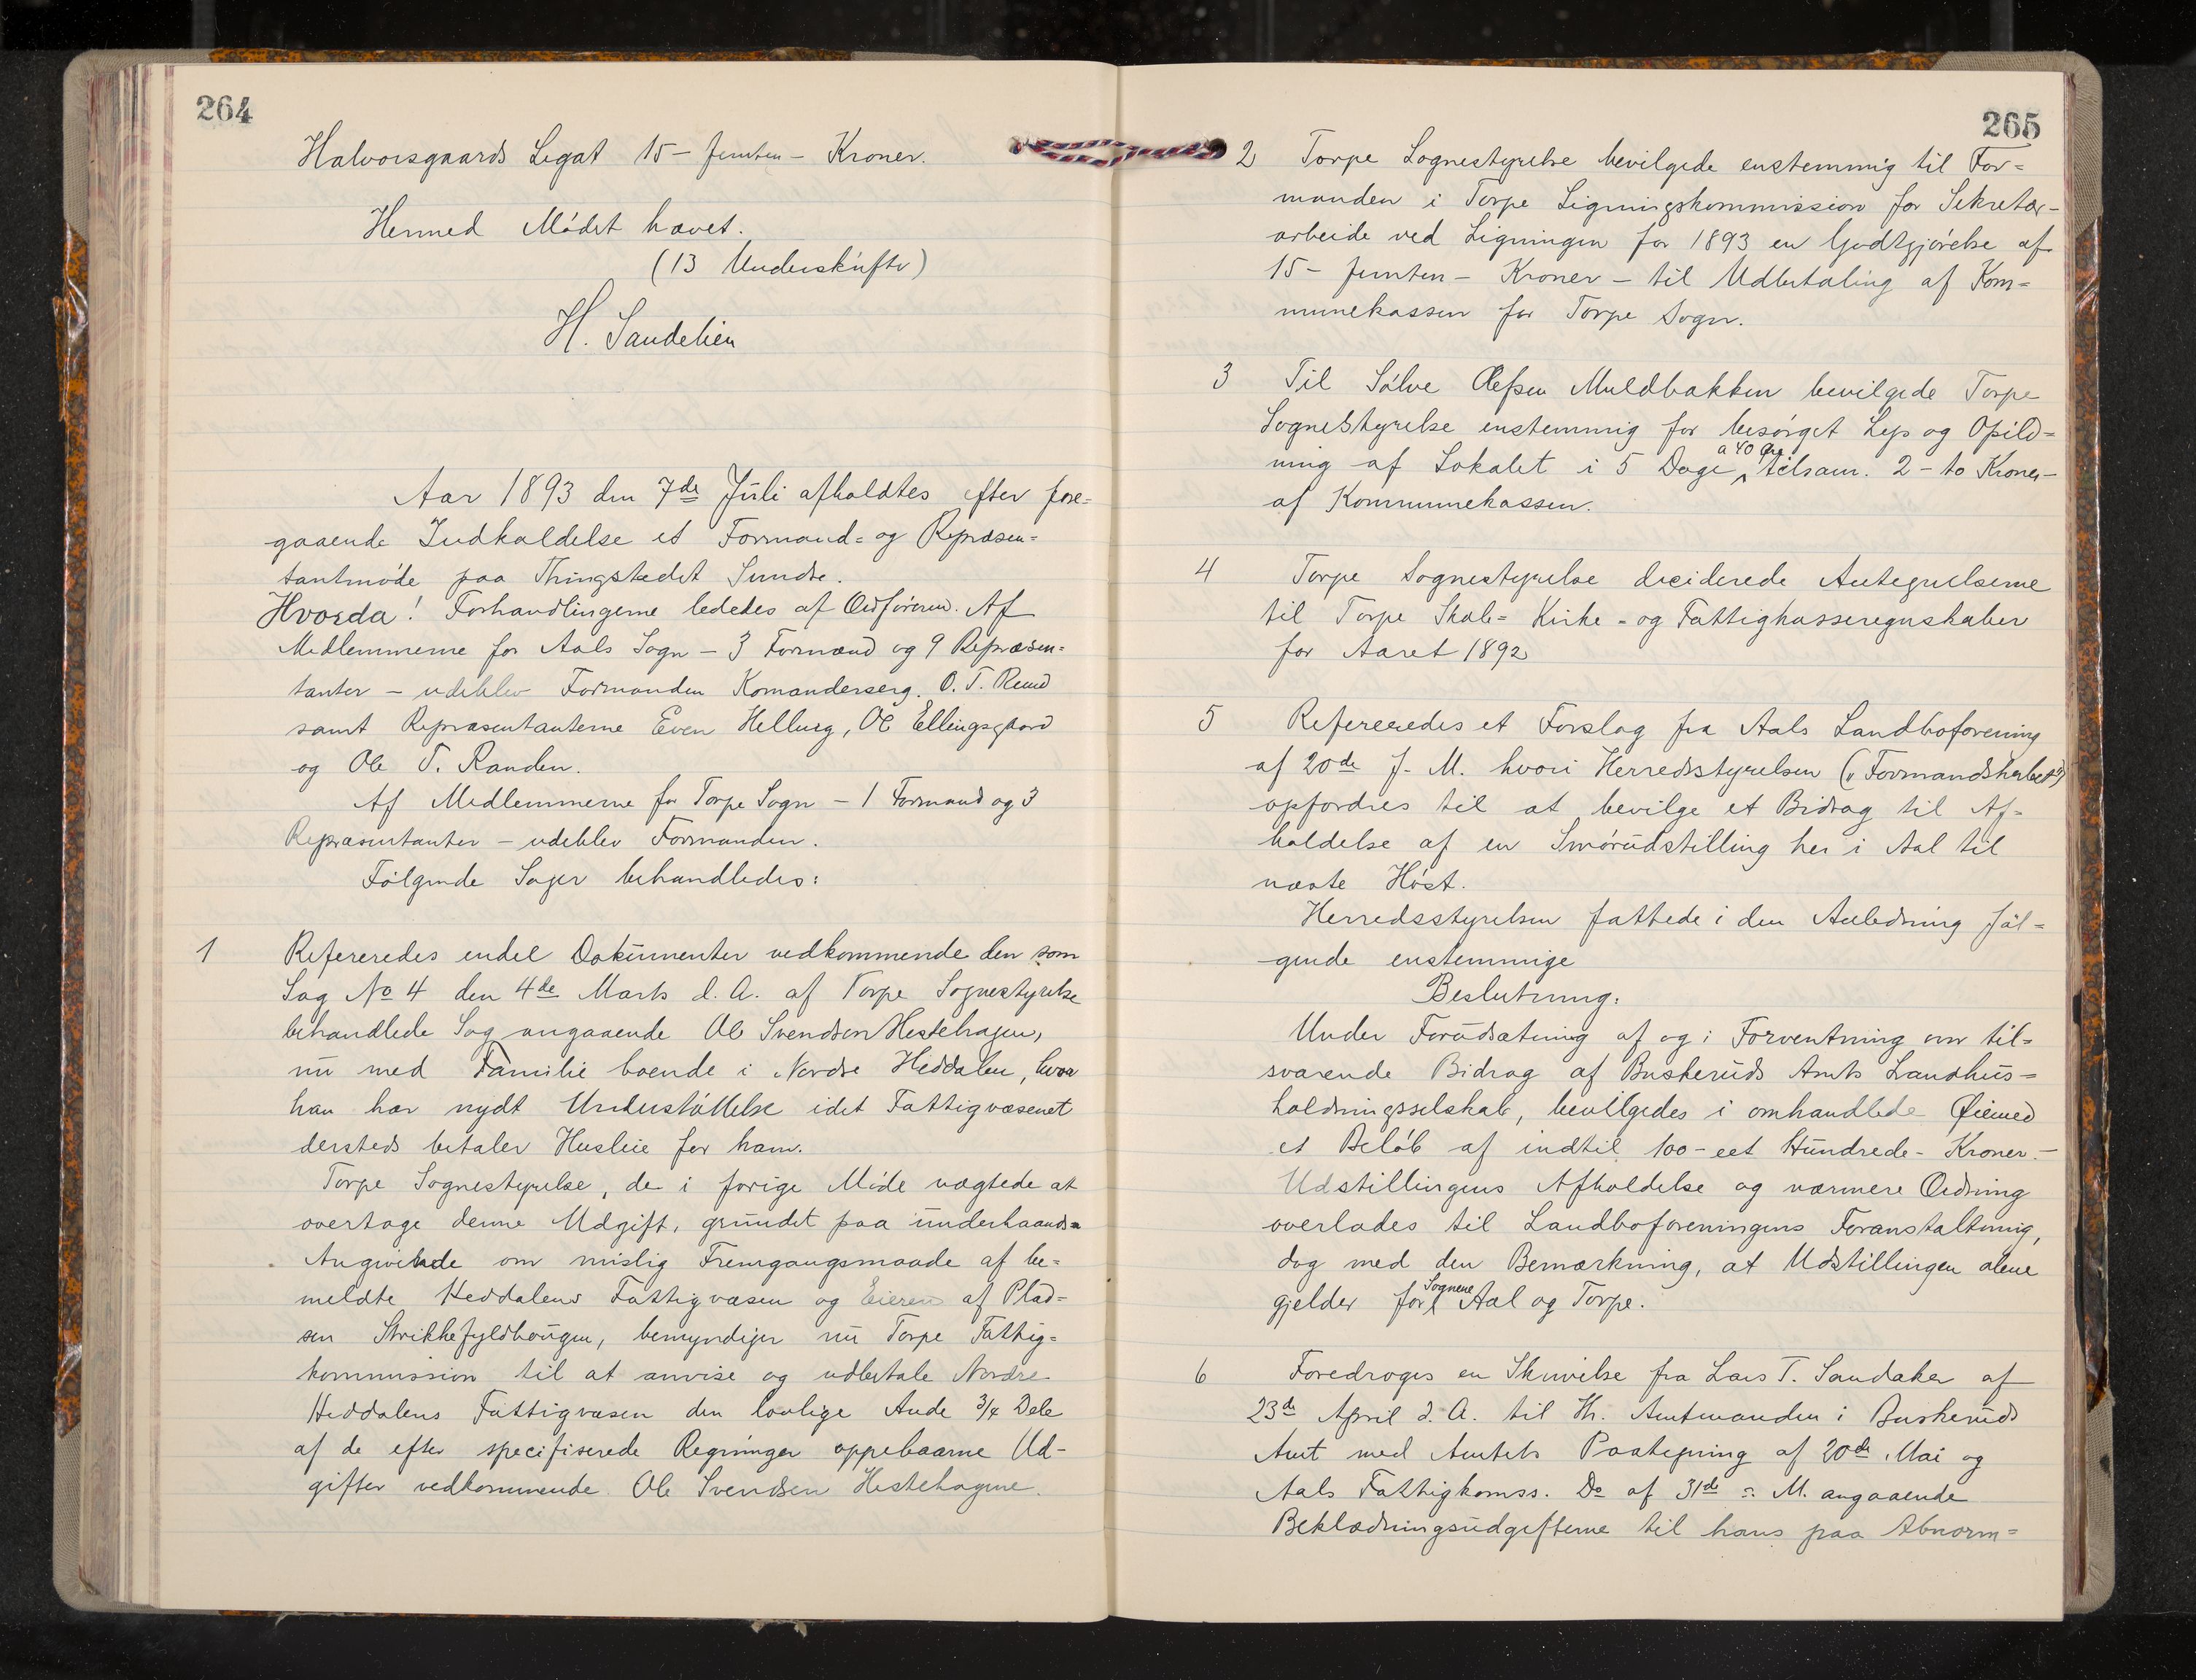 264
Halvorsgaards Legat 15 - femten - Kroner.
Hermed Mødet hævet.
(13 Underskrifter)
H. Sandelien
Aar 1893 den 7de Juli afholdtes efter fore=
gaaende Indkaldelse et Formand= og Repræsen=
tantmøde paa Thingstedet Sundre.
Hvorda! Forhandlingerne lededes af Ordføreren. Af
Medlemmerne for Aals Sogn - 3 Formænd og 9 Repræsen=
tanter - udeblev Formanden Komanderserg. O. T. Ruud
samt Repræsentanterne Even Helling, Ole Ellingsgaard
og Ole T. Randen.
Af Medlemmerne for Torpe Sogn - 1 Formand og 3
Repræsentanter - udeblev Formanden.
Følgende Sager behandledes:
1 Refereredes endel Dokumenter vedkommende den som
Sag No 4 den 4de Marts d. A. af Torpe Sognestyrelse
behandlede Sag angaaende Ole Svendsen Hestehagen,
nu med Familie boende i Nordre Heddalen, hvor
han har nydt Understøttelse idet Fattigvæsenet
dersteds betaler Husleie for ham.
Torpe Sognestyrelse, der i forige Møde vægtede at
overtage denne Udgift, grundet paa underhaands=
Angivende om mislig Fremgangsmaade af be=
meldte Heddalens Fattigvæsen og Eieren af Plad=
sen Strikkefyldhougen, bemyndiger nu Torpe Fattig=
kommission til at anvise og udbetale Nordre
Heddalens Fattigvæsen den lovlige Ande 3/4 Dele
af de efter specifiserede Regninger oppebaarne Ud-
gifter vedkommende Ole Svendsen Hestehagene.
265
2 Torpe Sognestyrelse bevilgede enstemmig til For=
manden i Torpe Ligningskommission for Sekretær-
arbeide ved Ligningen for 1893 en Godtgjørelse af
15 - femten - Kroner - til Udbetaling af Kom=
munekassen for Torpe Sogn.
3 Til Sølve Olefsen Muldbakken bevilgede Torpe
Sognestyrelse enstemmig for besørget Lys og Opild=
a 40 Øre
ning af Lokalet i 5 Dage tilsam. 2 - to Kroner -
af Kommunekassen.
4 Torpe Sognestyrelse deciderede Antegnelserne
til Torpe Skole= Kirke - og Fattigkasseregnskaber
for Aaret 1892
5 Refereredes et Forslag fra Aals Landboforening
af 20de f. M. hvori Herredsstyrelsen ("Formandskabet")
opfordres til at bevilge et Bidrag til Af=
holdelse af en Smørudstilling her i Aal til
næste Høst.
Herredsstyrelsen fattede i den Anledning føl=
gende enstemmige
Beslutning:
Under Forudsætning af og i Forventning om til=
svarende Bidrag af Buskeruds Amts Landhus=
holdningsselskab, bevilgedes i omhandlede Øiemed
et Beløb af indtil 100 - eet Hundrede - Kroner. -
Udstillingens Afholdelse og nærmere Ordning
overlades til Landboforeningens Foranstaltning,
dog med den Bemærkning, at Udstillingen alene
Sognene
gjelder for Aal og Torpe.
6 Foredroges en Skrivelse fra Lars T. Sandaker af
23de April d. A. til Hr. Amtmanden i Buskeruds
Amt med Amtets Paategning af 20de Mai og
Aals Fattigkomss. Do af 31de s. M. angaaende
Beklædningsudgifterne til hans paa Abnorm=